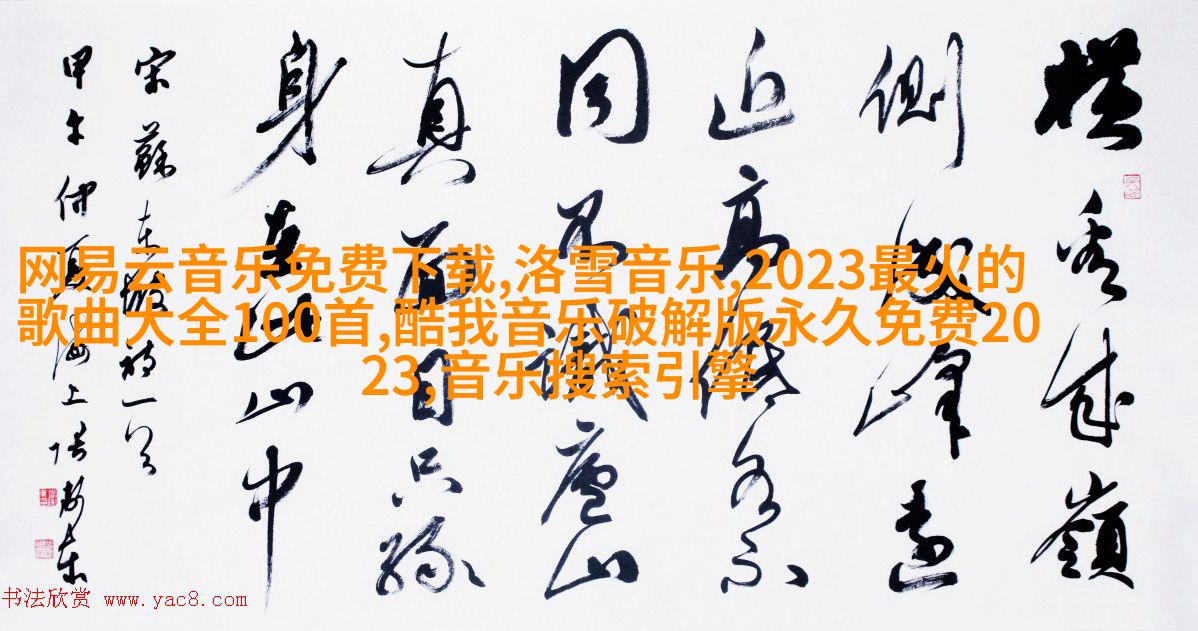 橫看成嶺
側成峰遠
近高低各不
同不識廬山
真面目只緣
身在此山中
宋蘇東坡詩一首
甲午仲夏海上張東
网易云音乐免费下载,洛雪音乐,2023最火的
歌曲大全100首,酷我音乐破解版永久免费20
23,音乐搜索引擎
书法欣赏 www.yac8.com